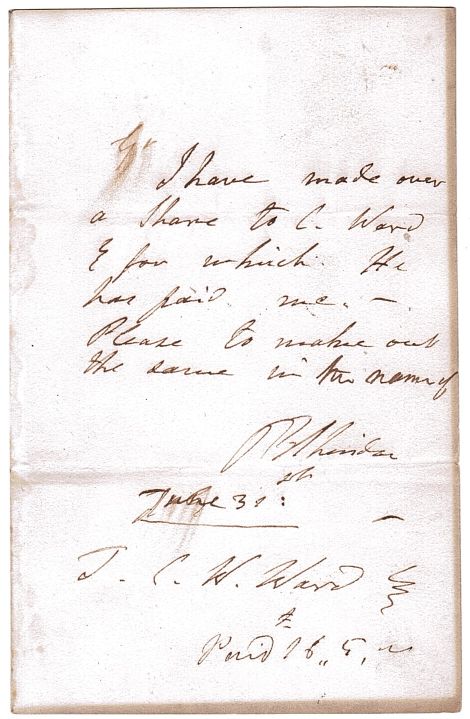 Sr
I have made over
a Share to C. Ward
& for which. He
has paid. me. —
Please to make out
the same in the name of
RBSheridan
June 31st: —
T. C. W. Ward
Paid 16,, 5,,